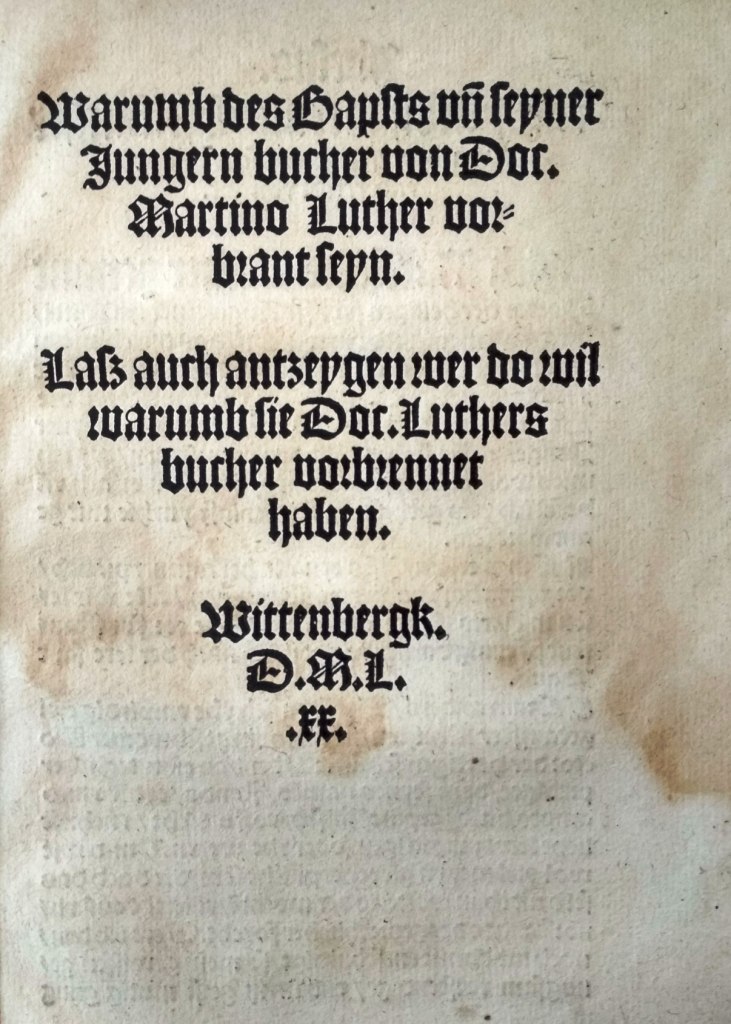 Warumb des Bapsts vñ ſeyner
Jungern bucher von Doc.
Martino Luther vor⸗
brant ſeyn.
Laſz auch antzeygen wer do wil
warumb ſie Doc. Luthers
bucher vorbrennet
haben.
Wittenbergk.
D.M.L.
.xx.